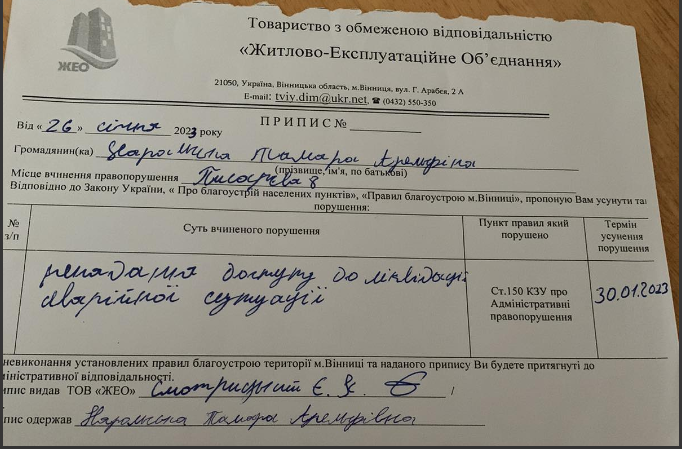 ЖЕО
Товариство з обмеженою відповідальністю
«Житлово-Експлуатаційне Об’єднання»
21050, Україна, Вінницька область, м.Вінниця, вул. Г. Арабея, 2 А
E-mail: tviy.dim@ukr.net, ☎ (0432) 550-350
ПРИПИС №
Від «26» січня 2023 року
Громадянин(ка) Тамара
(прізвище, ім'я, по батькові)
Місце вчинення правопорушення Писарєва 8
Відповідно до Закону України, « Про благоустрій населених пунктів», «Правил благоустрою м.Вінниці», пропоную Вам усунути
порушення:
№ з/п
Суть вчиненого порушення
Пункт правил який порушено
Термін усунення порушення
ненадання доступу до ліквідації
аварійної ситуації
Ст.150 КЗУ про Адміністративні правопорушення
30.01.2023
невиконання установлених правил благоустрою території м.Вінниці та наданого припису Ви будете притягнуті до
міністративної відповідальності.
пис видав ТОВ «ЖЕО» Є. /
пис одержав Тамара